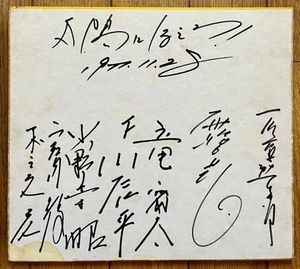 太陽にほえろ!
石原裕次郎
露口茂
竜雷太
下川辰平
小野寺昭
木之元亮